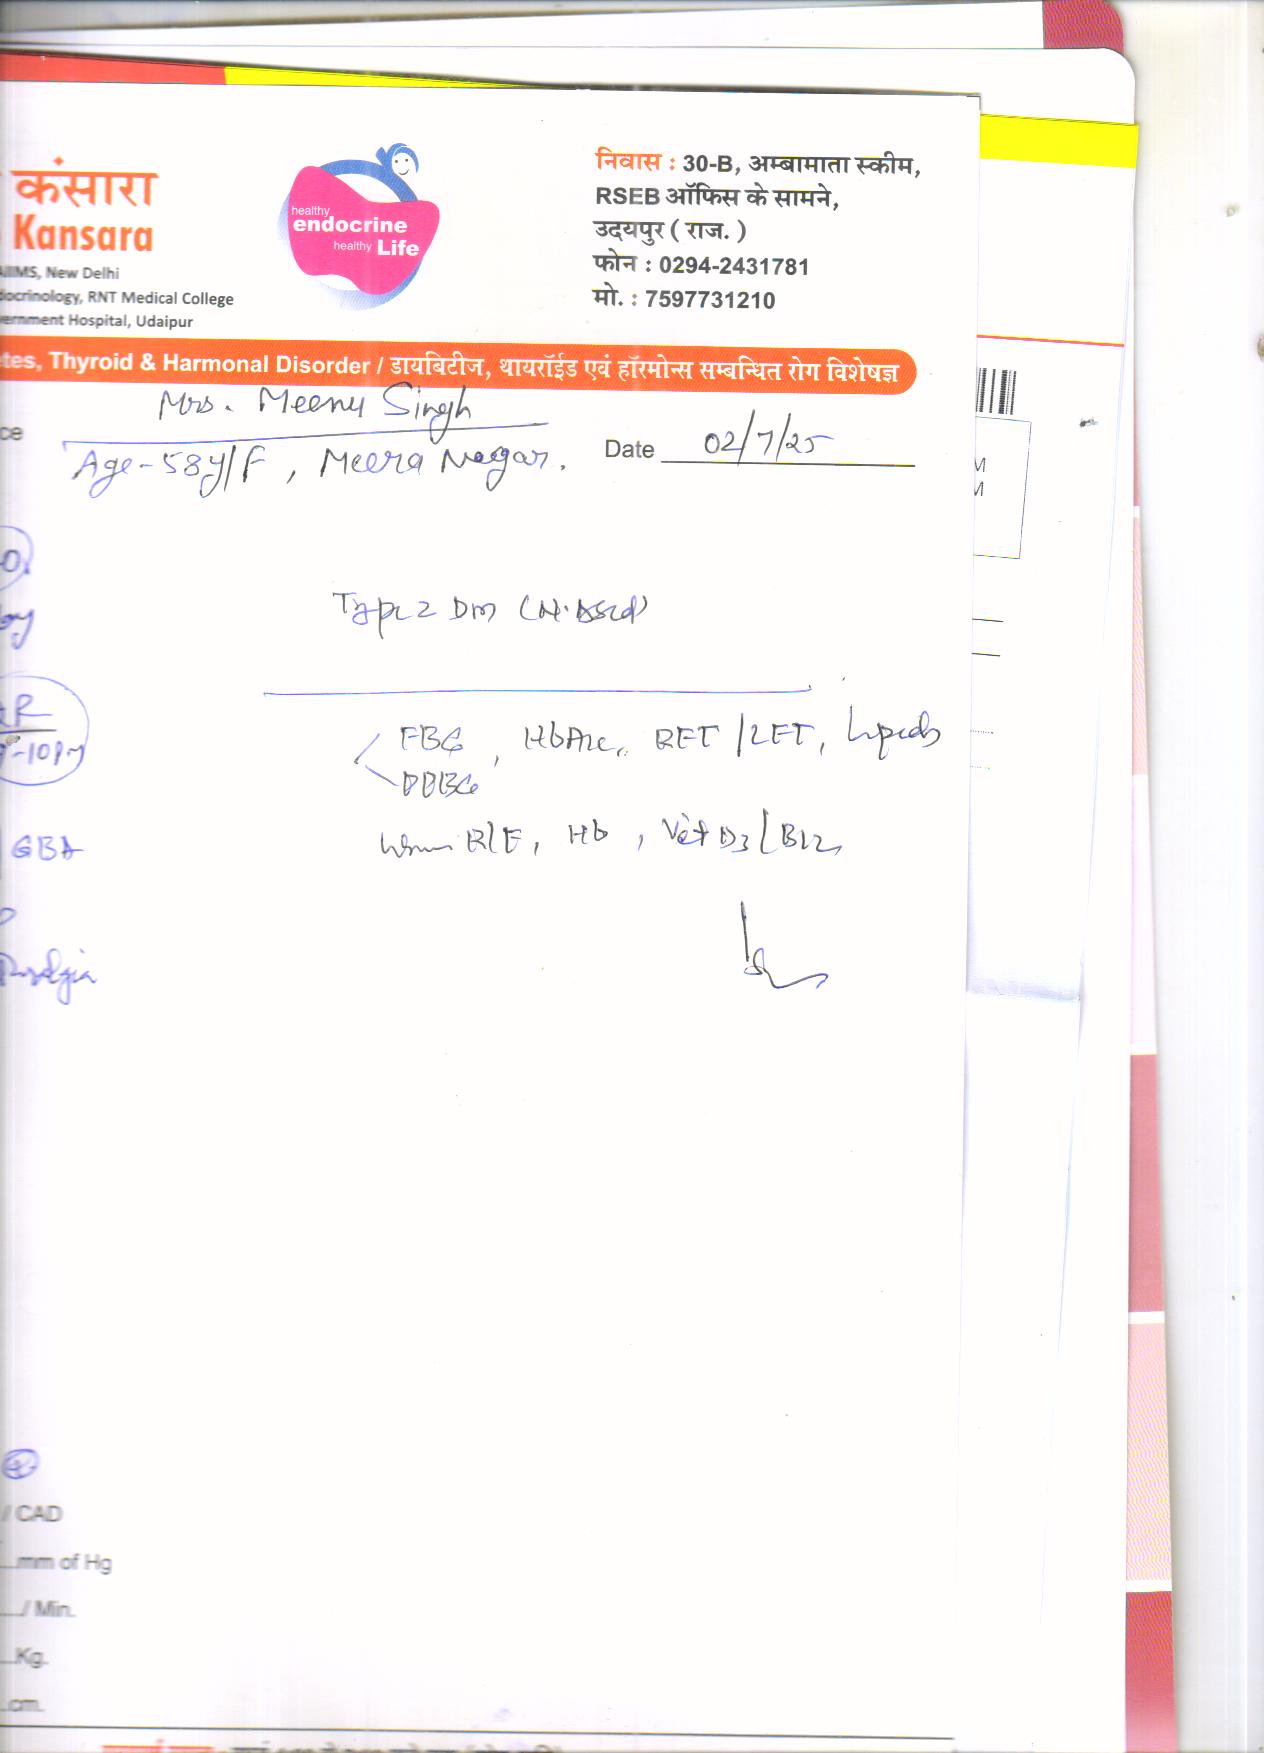 कंसारा
Kansara
AIIMS, New Delhi
docrinology, RNT Medical College
ernment Hospital, Udaipur
healthy
endocrine
healthy Life
निवास : 30-B, अम्बामाता स्कीम,
RSEB ऑफिस के सामने,
उदयपुर ( राज. )
फोन : 0294-2431781
मो. : 7597731210
tes, Thyroid & Harmonal Disorder / डायबिटीज, थायरॉईड एवं हॉरमोन्स सम्बन्धित रोग विशेषज्ञ
Mrs. Meenu Singh
ce
Age-58y/F, Meera Nagar.
Date 02/7/25
Type 2 DM
FBG, HbA1c, RFT/LFT, Lipids
PPBG
R/E, Hb, Vit D3/B12
-10pm
GBA
/ CAD
mm of Hg
/ Min.
Kg.
cm.